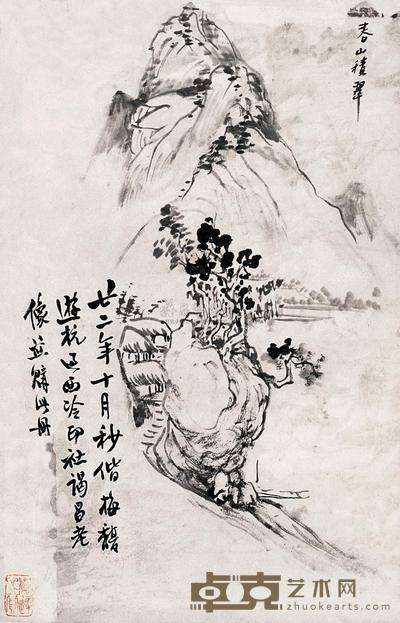 春山積翠
廿二年十月秒偕梅馥
遊杭過西泠印社謁昌老
像並購此冊
卓克艺术网
www.zhuokearts.com